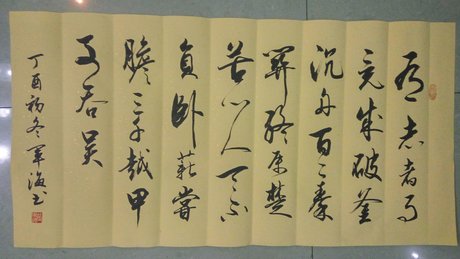 有志者事
竟成破釜
沉舟百二秦
關終属楚
苦心人天不
負卧薪嘗
膽三千越甲
可吞吴
丁酉初冬軍海书